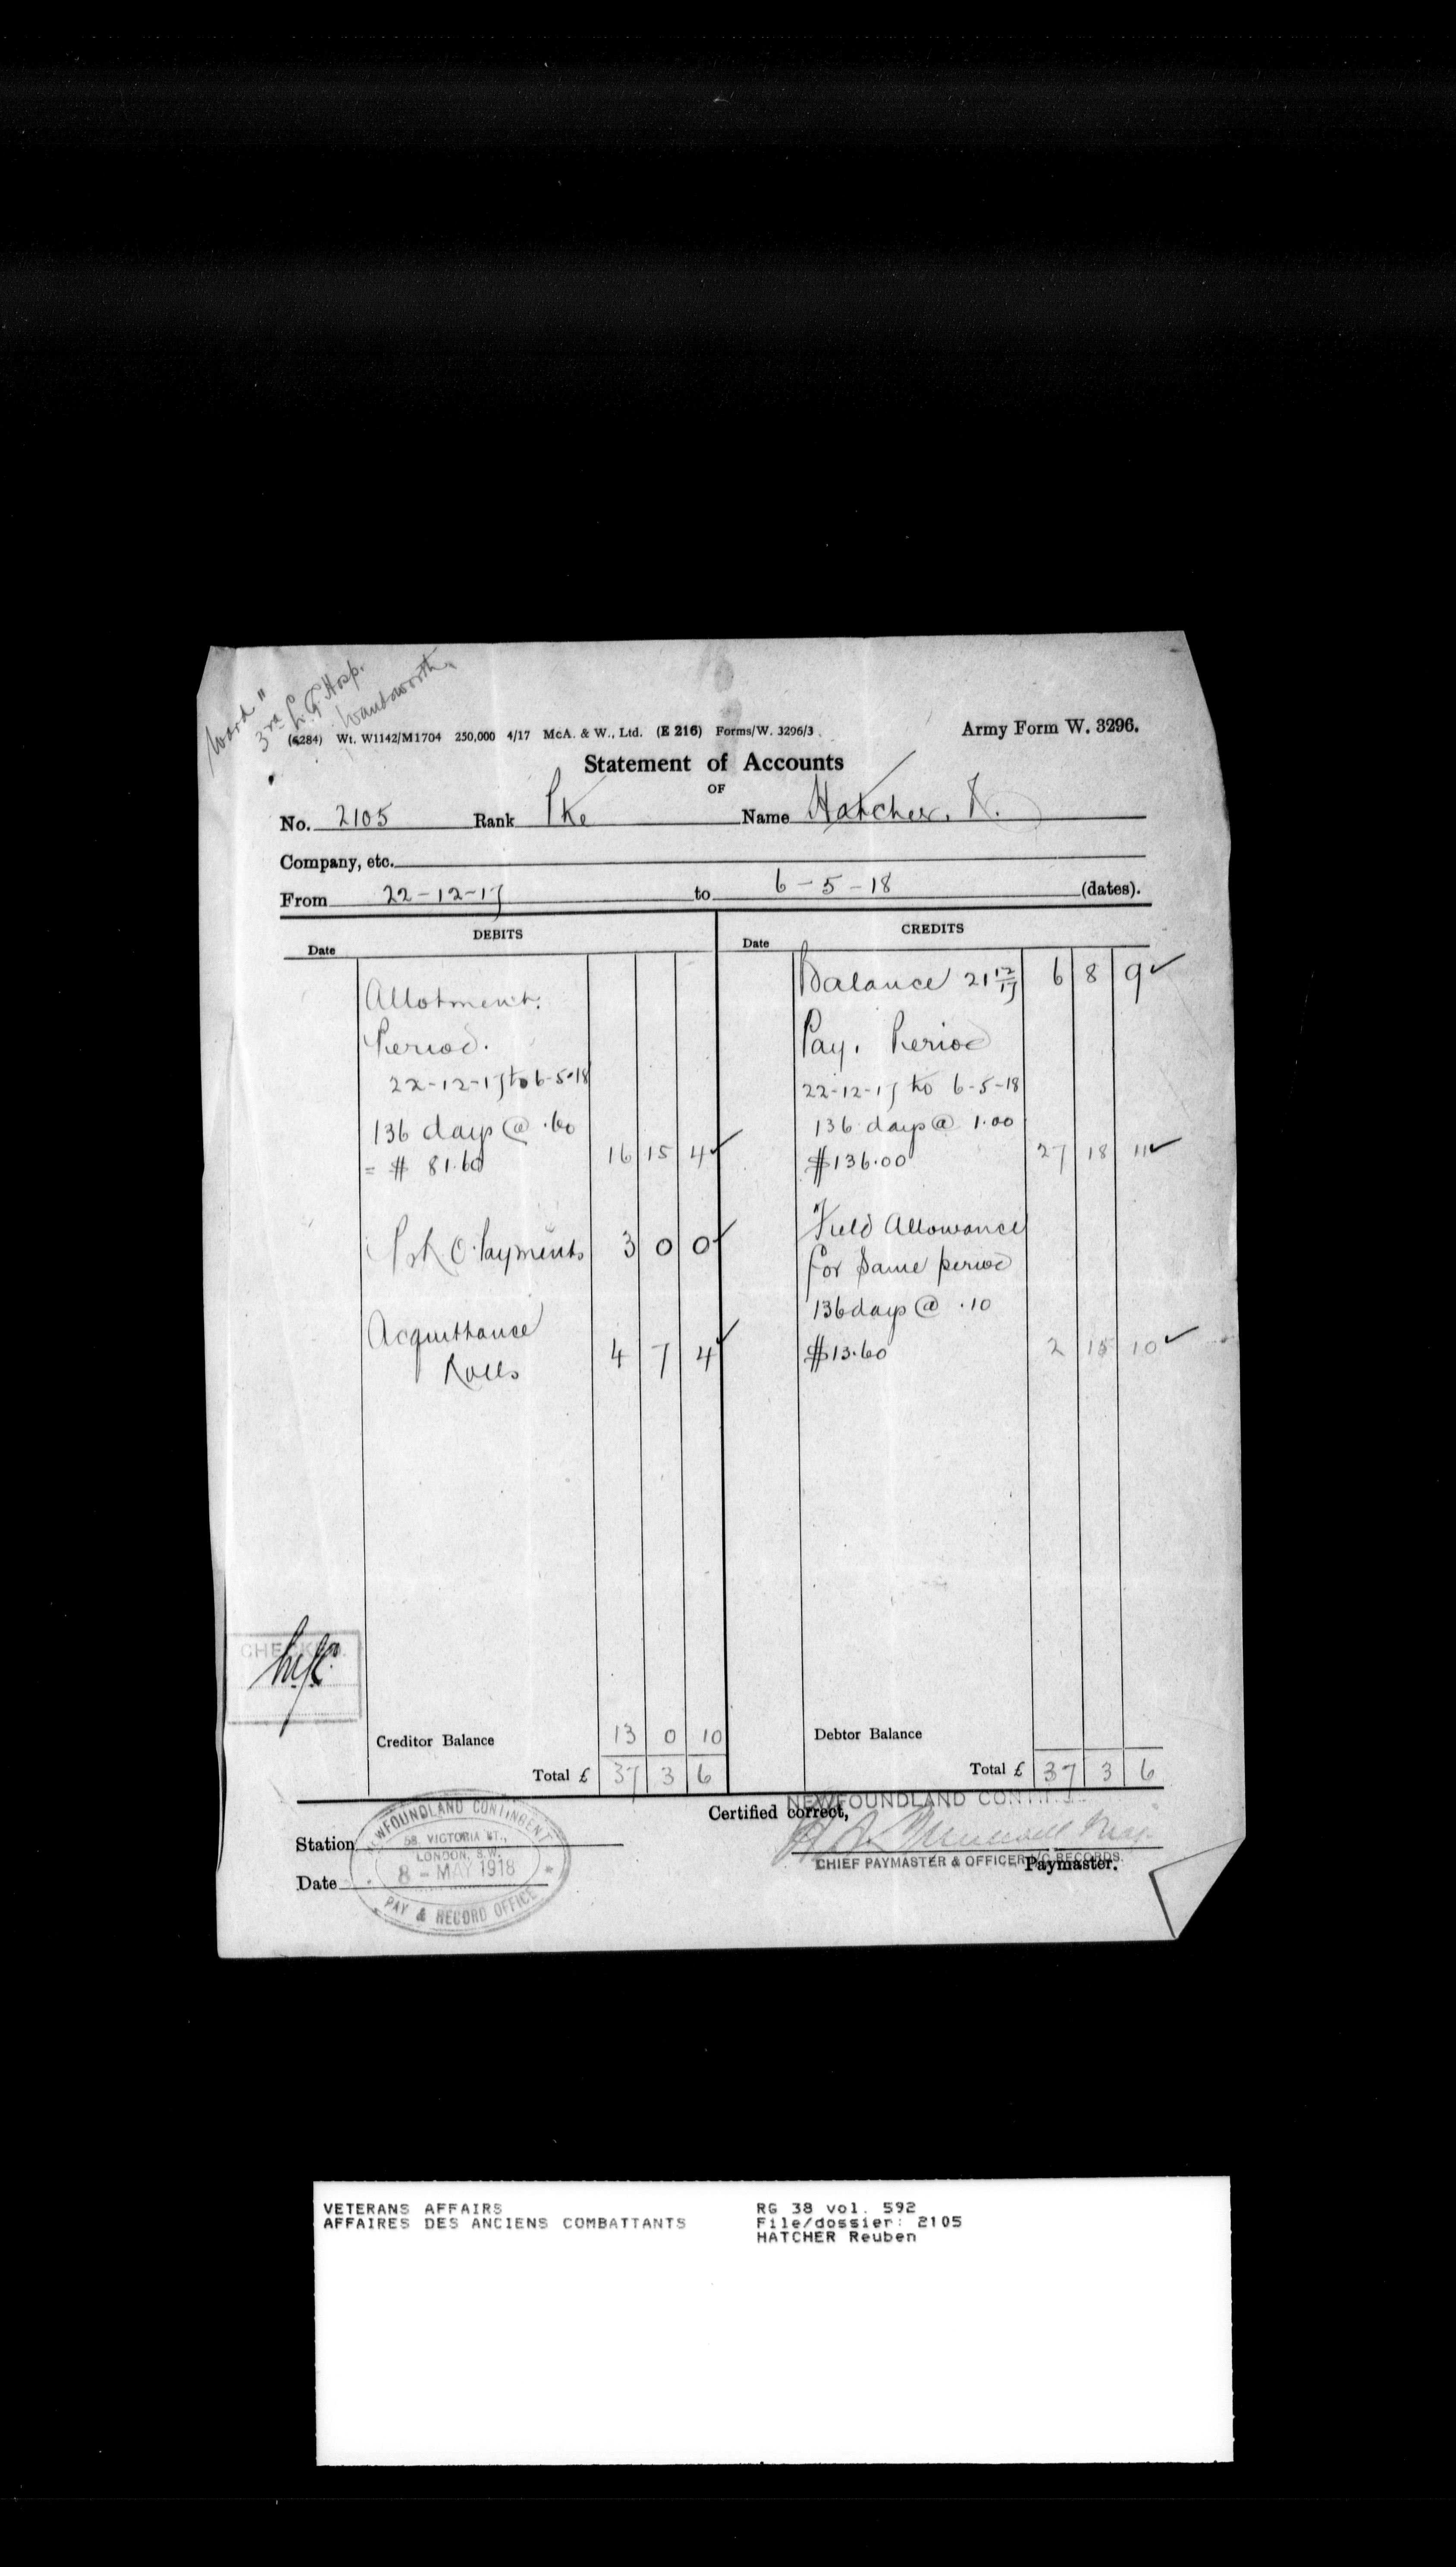 Ward "
3rd L. G. Hosp.
Wandsworth.
(6284) Wt. W1142/M1704 250,000 4/17 McA. & W., Ltd. (E 216) Forms/W. 3296/3
Army Form W. 3296.
Statement of Accounts
OF
No. 2105 Rank Pte Name Hatcher, R.
Company, etc.
From 22-12-17 to 6-5-18 (dates).
DEBITS
Date
Allotment.
Period.
22-12-17 to 6-5-18
136 days @ .60
= $ 81.60 16 15 4
Payments 3 0 0
Acquittance
Rolls 4 7 4
Creditor Balance 13 0 10
Total £ 37 3 6
CREDITS
Date
Balance 21 12/17 6 8 9
Pay. Period
22-12-17 to 6-5-18
136 days @ 1.00
$136.00 27 18 11
Field Allowance
for same period
136 days @ .10
$13.60 2 15 10
Debtor Balance
Total £ 37 3 6
CHECKED.
Certified correct,
NEWFOUNDLAND CONT
CHIEF PAYMASTER & OFFICER I/C RECORDS.
Paymaster.
Station
Date
NEWFOUNDLAND CONTINGENT
58, VICTORIA ST.,
LONDON, S.W.
8 - MAY 1918
PAY & RECORD OFFICE
VETERANS AFFAIRS
AFFAIRES DES ANCIENS COMBATTANTS
RG 38 vol. 592
File/dossier: 2105
HATCHER Reuben